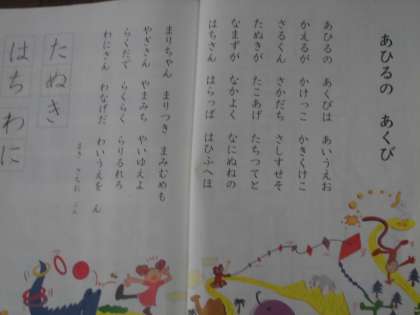 あひるの　あくび
あひるの　あくびは　あいうえお
かえるが　かけっこ　かきくけこ
さるくん　さかだち　さしすせそ
たぬきが　たこあげ　たちつてと
なまずが　なかよく　なにぬねの
はちさん　はらっぱ　はひふへほ
まりちゃん　まりつき　まみむめも
やぎさん　やまみち　やいゆえよ
らくだで　らくらく　らりるれろ
わにさん　わなげだ　わいうえを　ん
まき　さちお　ぶん
たぬき
はち　わに